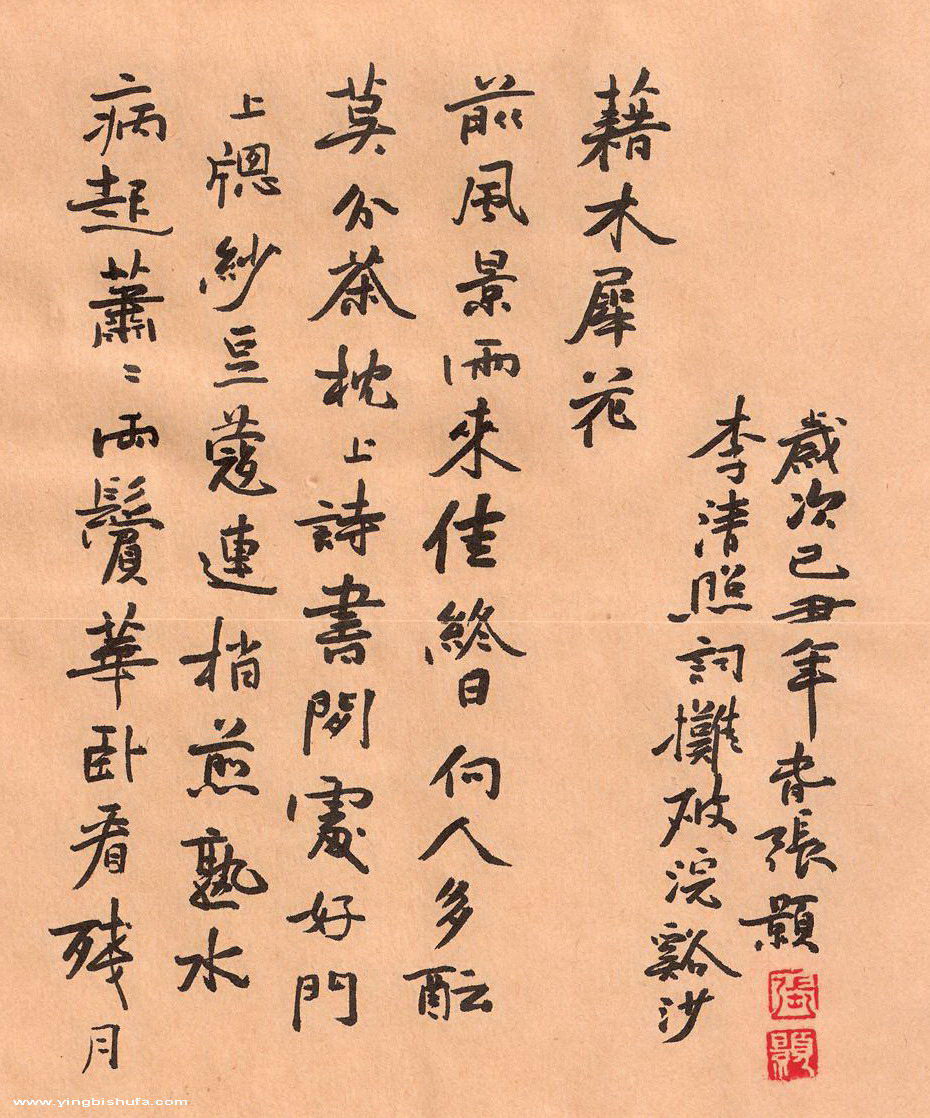 病起蕭〻兩鬢華卧看残月
上牕紗豆蔻連梢煎熟水
莫分茶枕上詩書閒處好門
前風景雨來佳終日向人多醞
藉木犀花
李清照詞攤破浣谿沙
歲次己丑年春張顥
張顥
www.yingbishufa.com